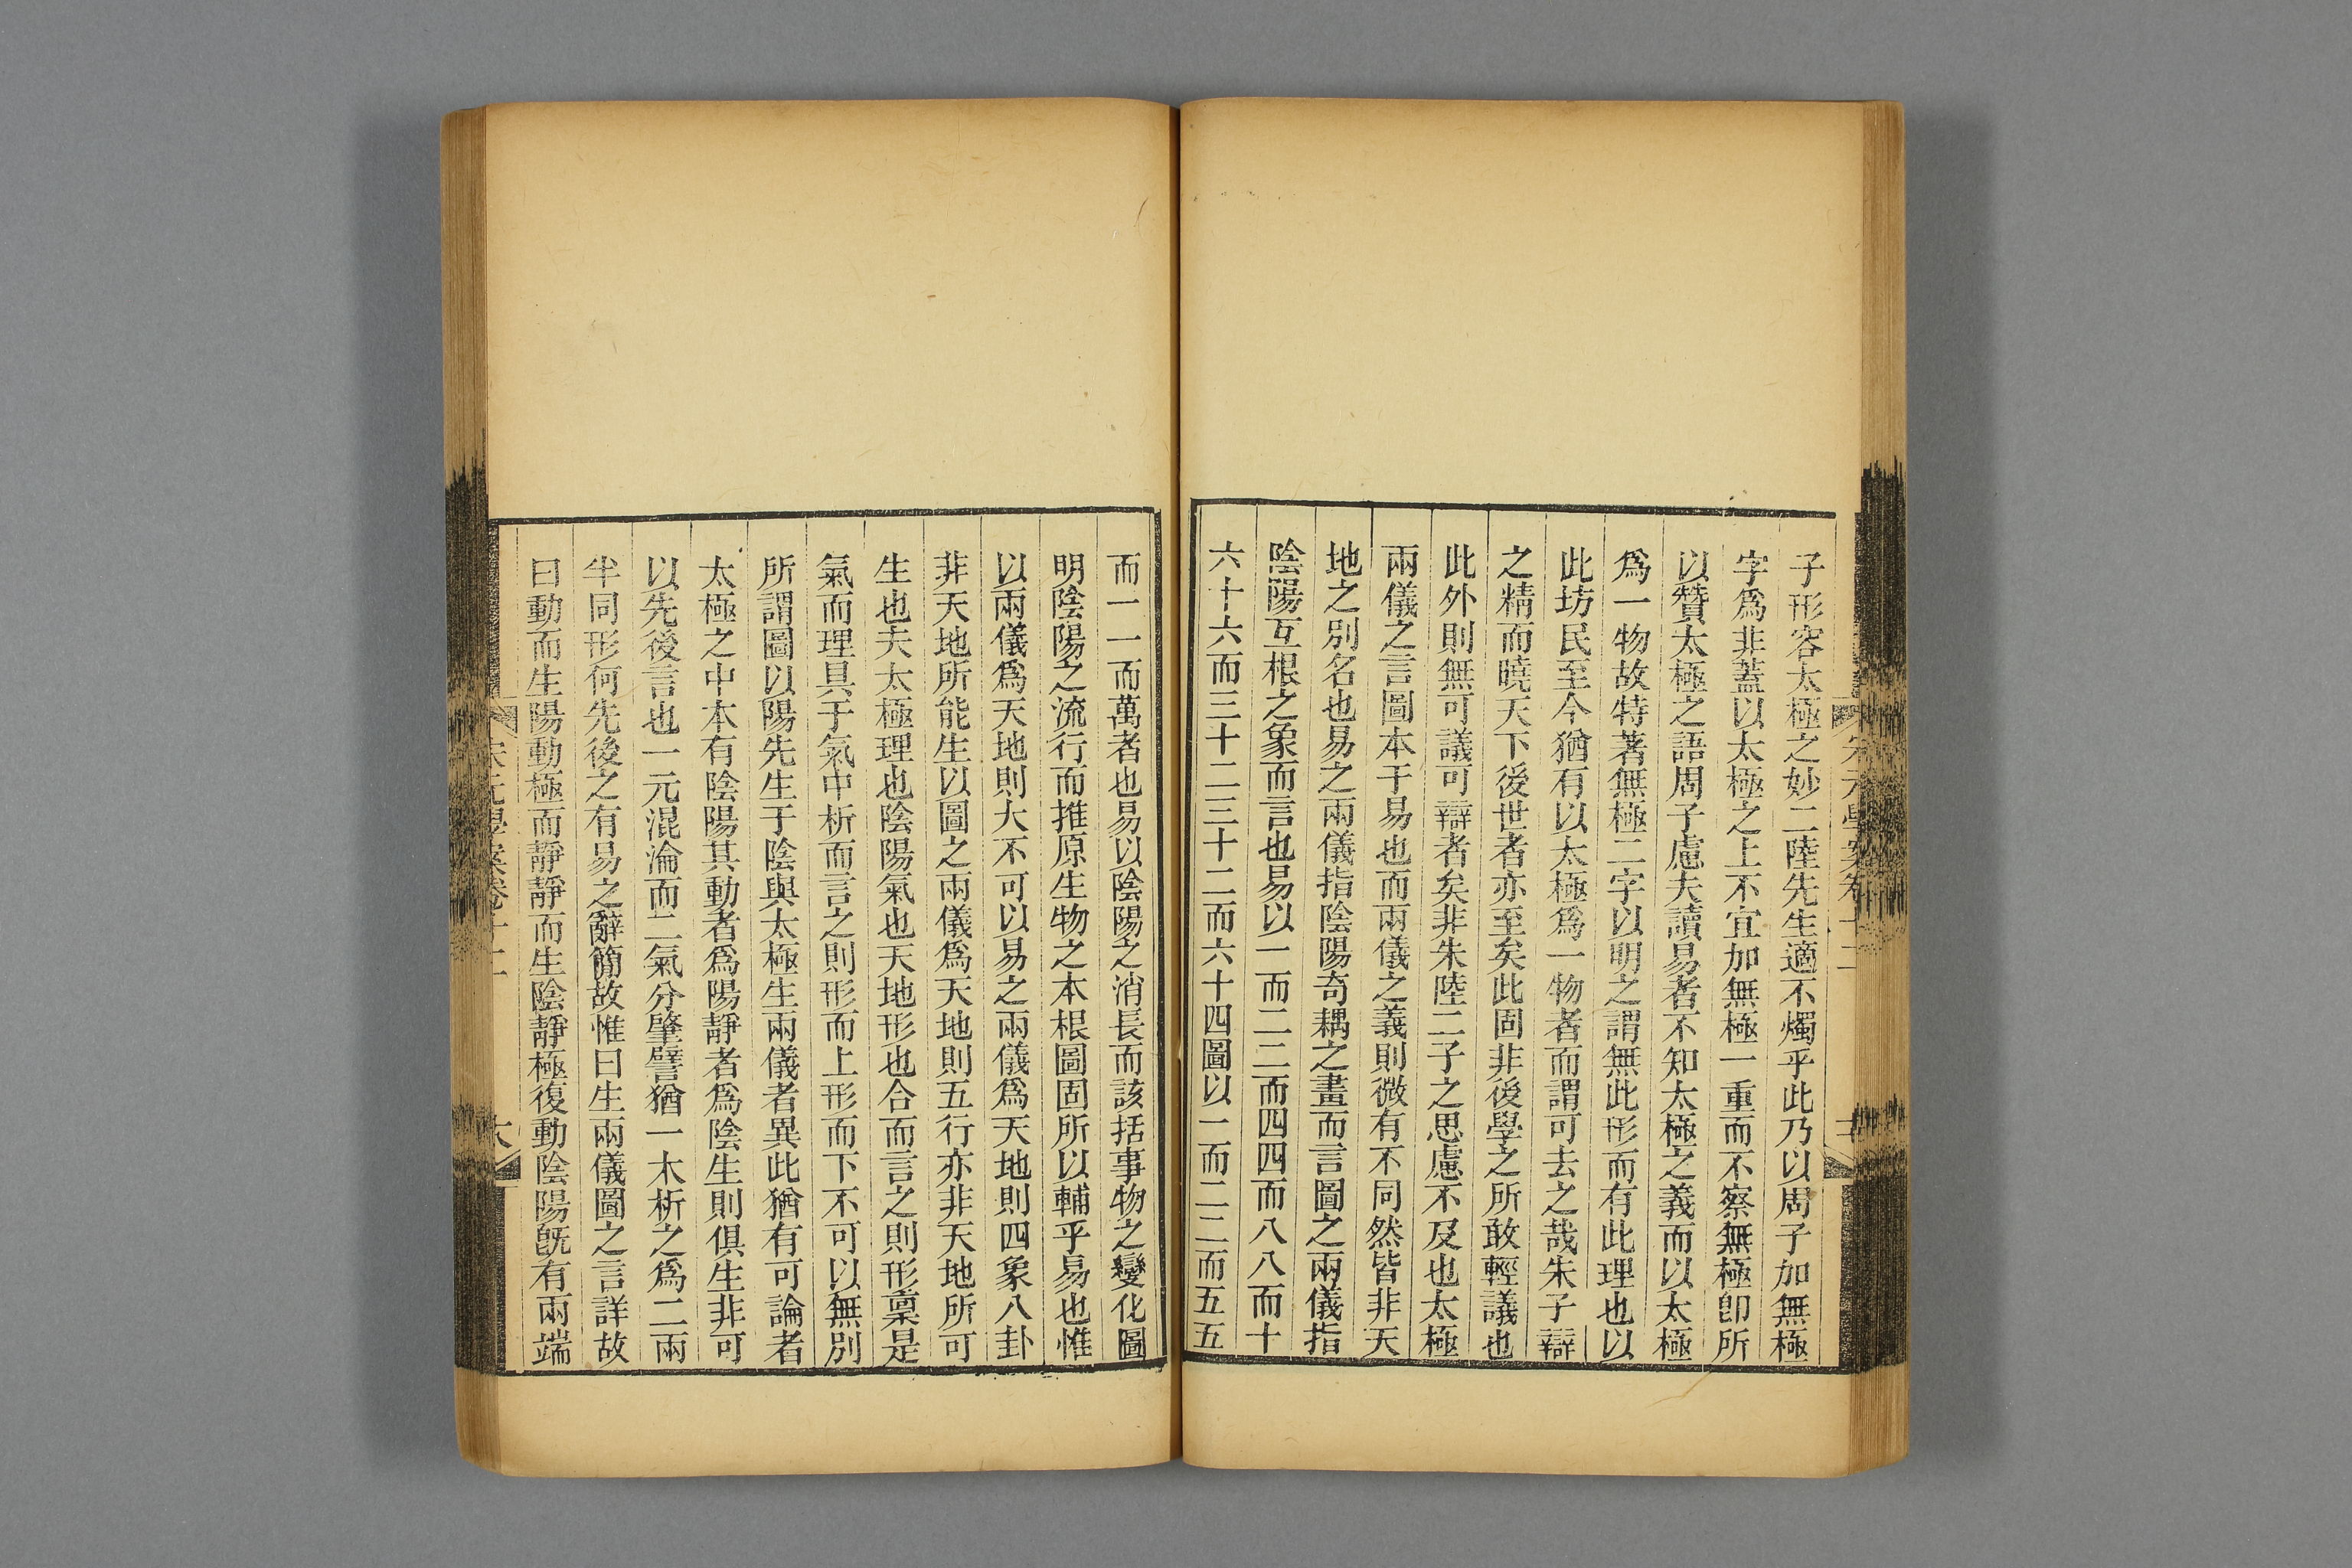 子形容太極之妙二陸先生適不燭乎此乃以周子加無極
字爲非蓋以太極之上不宜加無極一重而不察無極卽所
以贊太極之語周子慮夫讀易者不知太極之義而以太極
爲一物故特著無極二字以明之謂無此形而有此理也以
此坊民至今猶有以太極爲一物者而謂可去之哉朱子辯
之精而曉天下後世者亦至矣此固非後學之所敢輕議也
此外則無可議可辯者矣非朱陸二子之思慮不及也太極
兩儀之言圖本于易也而兩儀之義則微有不同然皆非天
地之別名也易之兩儀指陰陽奇耦之畫而言圖之兩儀指
陰陽互根之象而言也易以一而二二而四四而八八而十
六十六而三十二三十二而六十四圖以一而二二而五五
而一一而萬者也易以陰陽之消長而該括事物之變化圖
明陰陽之流行而推原生物之本根圖固所以輔乎易也惟
以兩儀爲天地則大不可以易之兩儀爲天地則四象八卦
非天地所能生以圖之兩儀爲天地則五行亦非天地所可
生也夫太極理也陰陽氣也天地形也合而言之則形稟是
氣而理具于氣中析而言之則形而上形而下不可以無別
所謂圖以陽先生于陰與太極生兩儀者異此猶有可論者
太極之中本有陰陽其動者爲陽靜者爲陰生則俱生非可
以先後言也一元混淪而二氣分肇譬猶一木析之爲二兩
半同形何先後之有易之辭簡故惟曰生兩儀圖之言詳故
曰動而生陽動極而靜靜而生陰靜極復動陰陽旣有兩端
宋元學案卷十二